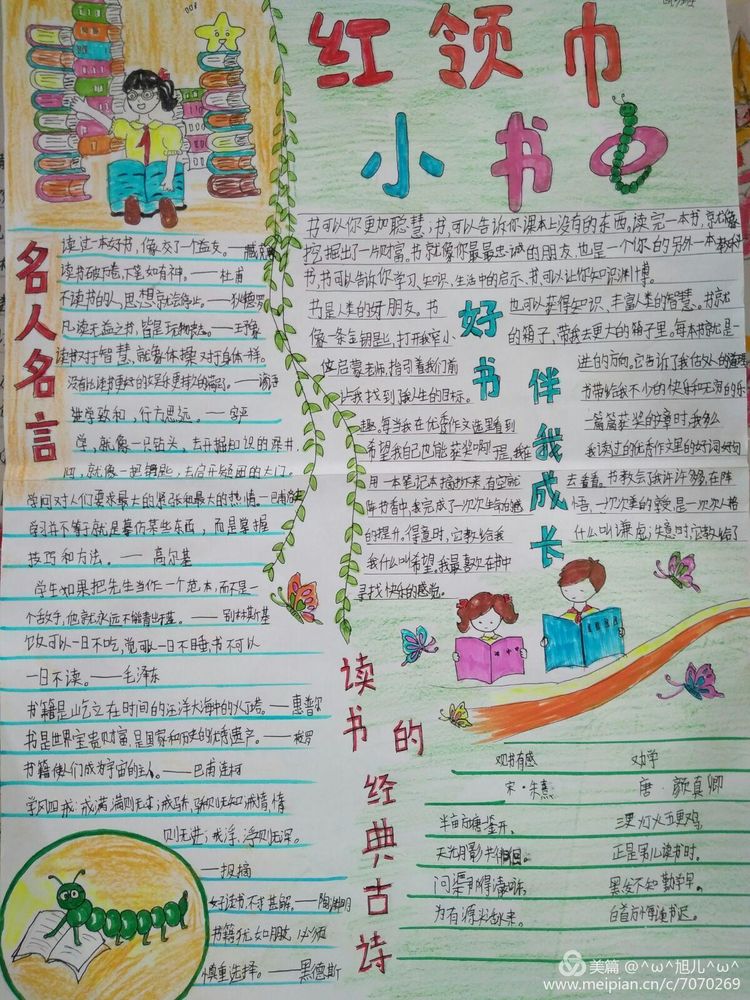 红领巾
小书
名人名言
读过一本好书,像交了个益友。——臧克家
读书破万卷,下笔如有神。——杜甫
不读书的人,思想就会停止。——狄德罗
凡读无益之书,皆是玩物丧志。——王豫
读书对于智慧,就像体操对于身体一样。
进学致和,行方思远。
学,就像一只钻头,去开掘知识的深井
问,就像一把钥匙,去启开疑团的大门
学问对人们要求最大的紧张和最大的热情。——巴甫
学习并不等于就是摹仿某些东西,而是掌握
技巧和方法。——高尔基
学生如果把先生当作一个范本,而不是一
个敌手,他就永远不能青出于蓝。——别林斯基
饭可以一日不吃,觉可以一日不睡,书不可以
一日不读。——毛泽东
书籍是屹立在时间的汪洋大海中的灯塔。——惠普尔
书是世界宝贵财富,是国家和历史的优秀遗产。——梭罗
书籍使人们成为宇宙的主人。——巴甫连柯
学风四戒:戒满,满则无求;戒骄,骄则无知;戒惰,惰
则无进;戒浮,浮则无深。
——报摘
好读书,不求甚解。——陶渊明
书籍犹如朋友,必须
慎重选择。——黑德斯
书可以你更加聪慧;书可以告诉你课本上没有的东西。读完一本书,就好像
挖掘出了一片财富。书就像你最最忠诚的朋友,也是一个你的另外一本教科
书,书可以告诉你学习、知识、生活中的启示、书可以让你知识渊博。
好书伴我成长
书是人类的好朋友。书 也可以获得知识、丰富人类的智慧。书就
像一条金钥匙,打开我窄小 的箱子,带我去更大的箱子里。每本书就是一
位启蒙老师,指引着我们前 进的方向。它告诉了我
让我找到了我人生的目标。 书带给我不少的快乐和无穷的乐
趣。每当我在优秀作文选里看到 一篇篇获奖的文章时,我多么
希望我自己也能获奖啊 我读过的优秀作文里的好词好句
用一本笔记本摘抄下来,有空就 去看看。书教会了我许许多多,在阵
阵书香中,我完成了一次次生命的感 悟,一次次美的享受,是一次次人格
的提升。得意时,它教给我 什么叫谦虚;失意时,它教给了
我什么叫希望。我最喜欢在书中
寻找快乐的感觉。
读书的经典古诗
观书有感
宋·朱熹
半亩方塘一鉴开,
天光云影共徘徊。
问渠那得清如许,
为有源头活水来。
劝学
唐·颜真卿
三更灯火五更鸡,
正是男儿读书时。
黑发不知勤学早,
白首方悔读书迟。
美篇 @^ω^旭儿^ω^
www.meipian.cn/c/7070269